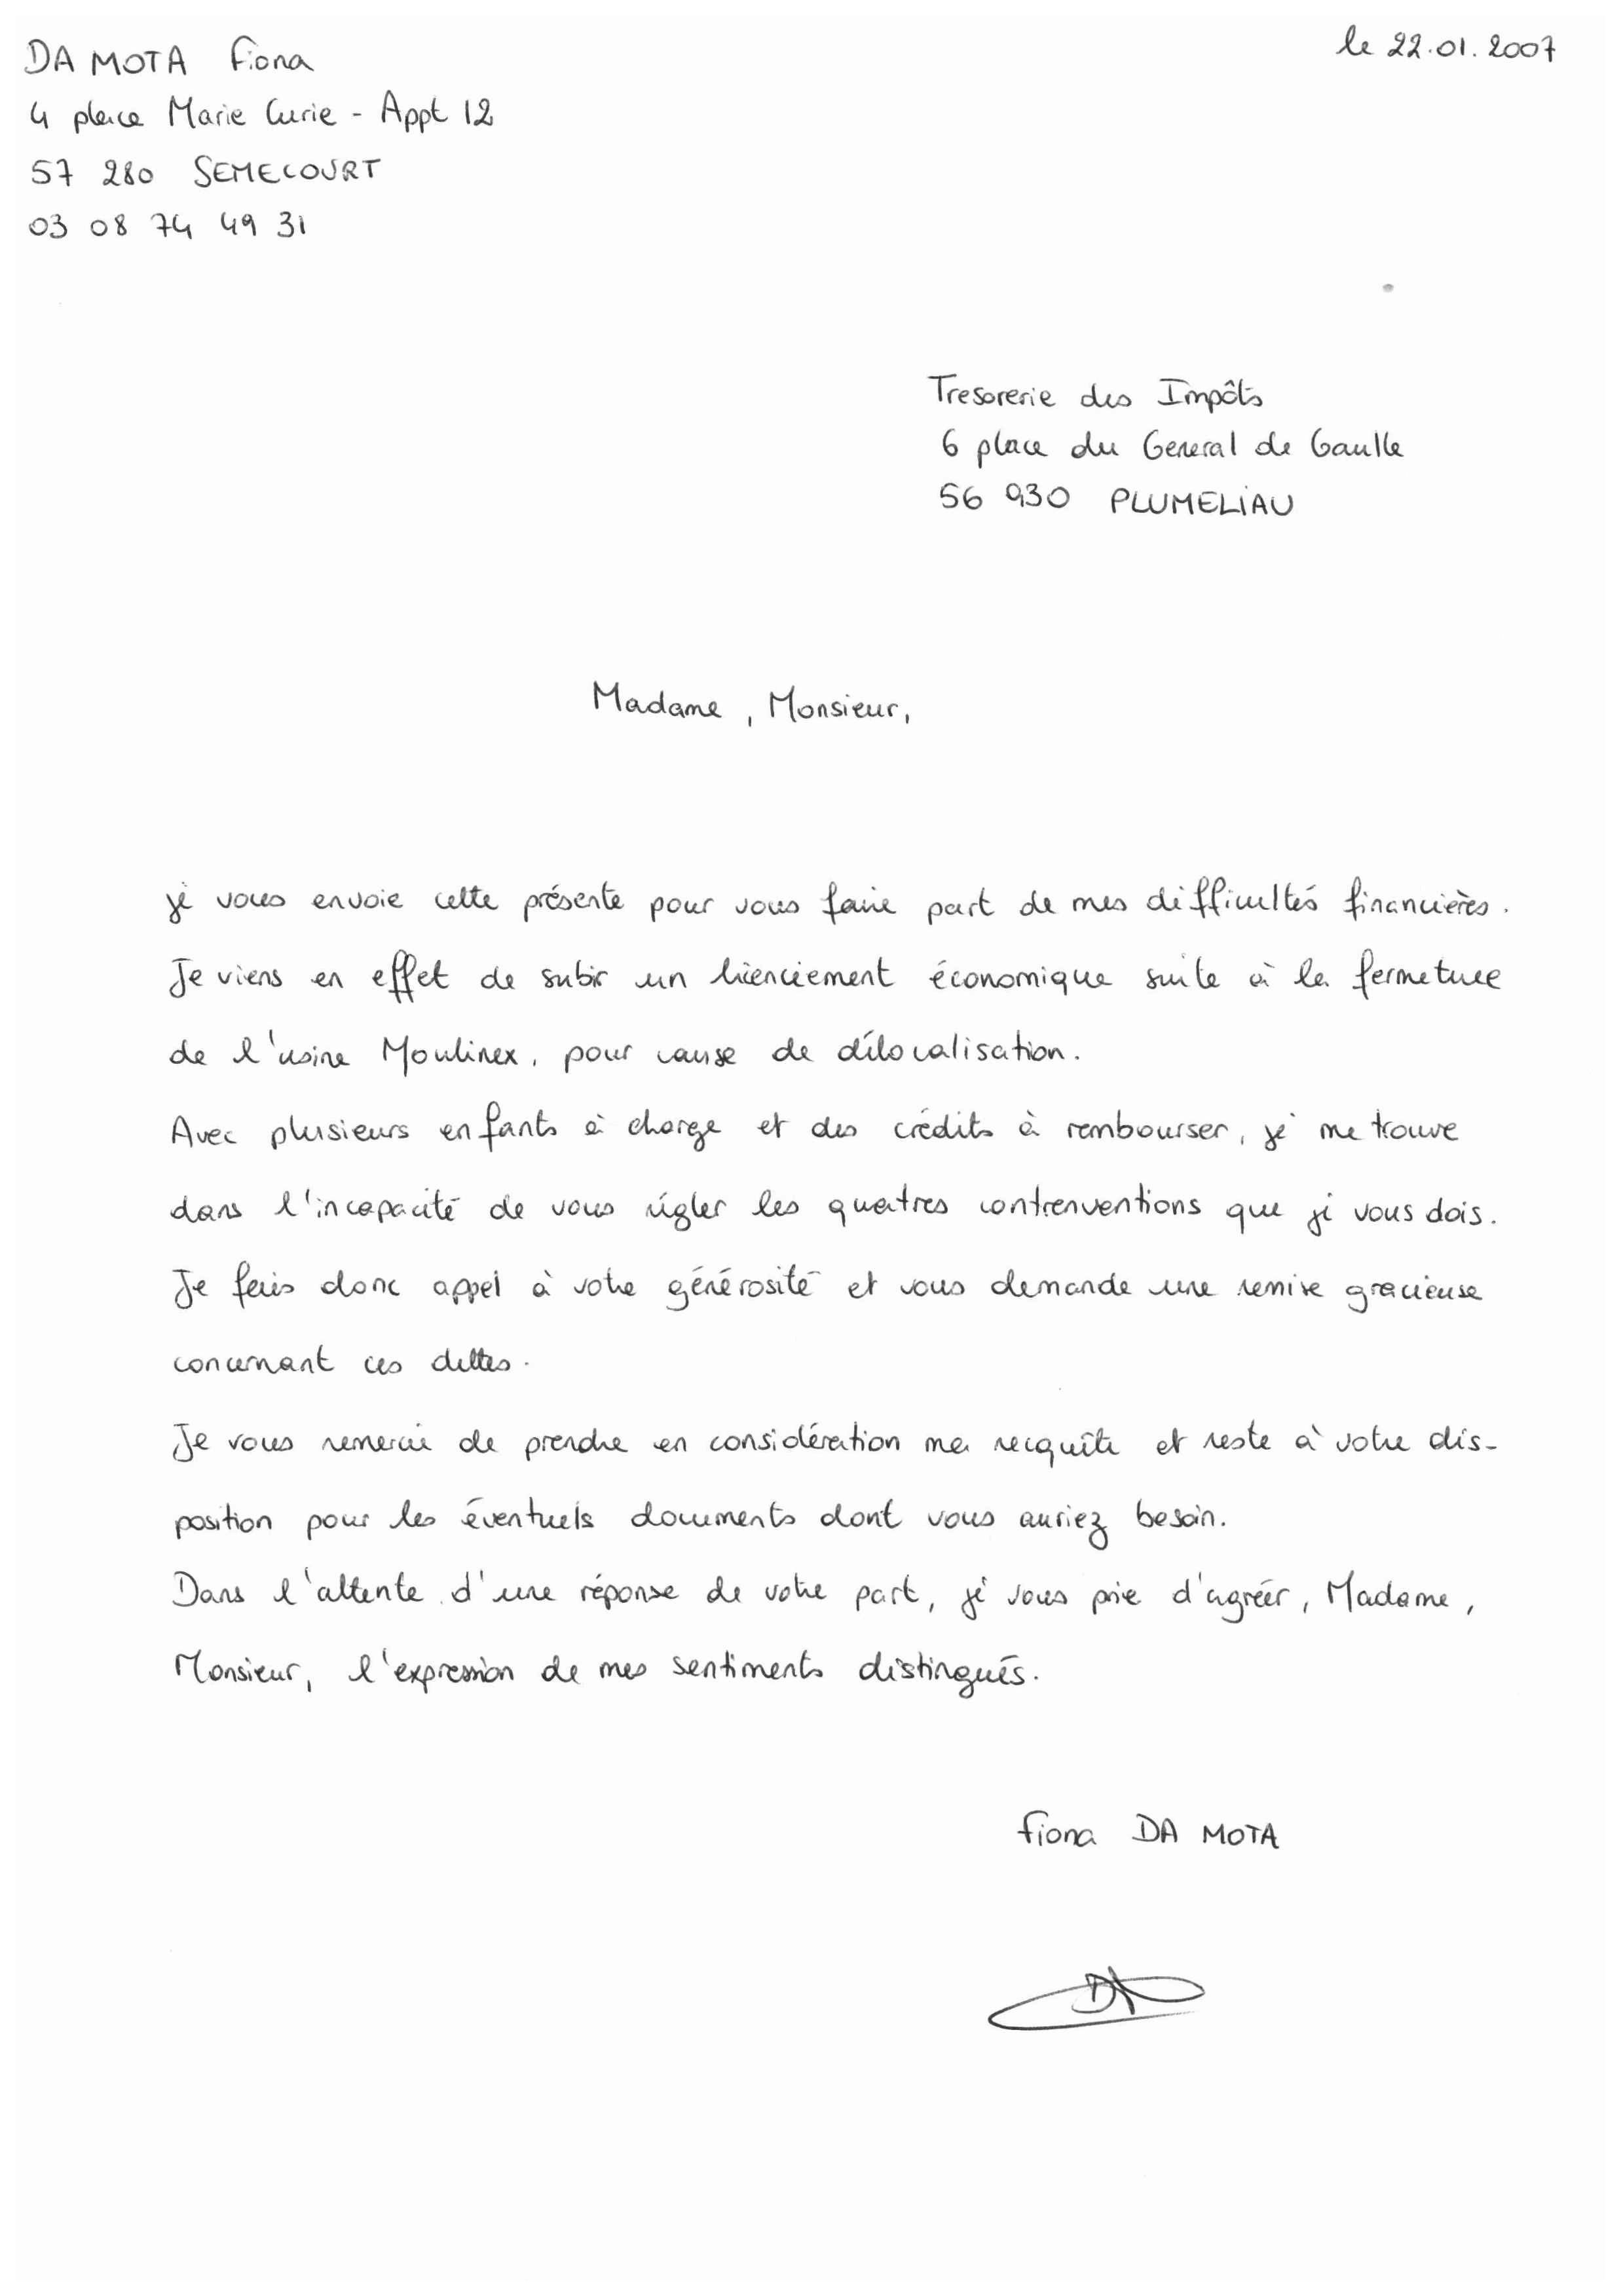 DA MOTA Fiona
le 22.01.2007
4 place Marie Curie - Appt 12
57 280 SEMECOURT
03 08 74 49 31
Tresorerie des Impôts
6 place du General de Gaulle
56 930 PLUMELIAU
Madame, Monsieur,
je vous envoie cette présente pour vous faire part de mes difficultés financières.
Je viens en effet de subir un licenciement économique suite à la fermeture
de l'usine Moulinex, pour cause de délocalisation.
Avec plusieurs enfants à charge et des crédits à rembourser, je me trouve
dans l'incapacité de vous régler les quatres contrenventions que je vous dois.
Je fais donc appel à votre générosité et vous demande une remise gracieuse
concernant ces dettes.
Je vous remercie de prendre en considération ma recquête et reste à votre dis-
position pour les éventuels documents dont vous auriez besoin.
Dans l'attente d'une réponse de votre part, je vous prie d'agréer, Madame,
Monsieur, l'expression de mes sentiments distingués.
Fiona DA MOTA
DA